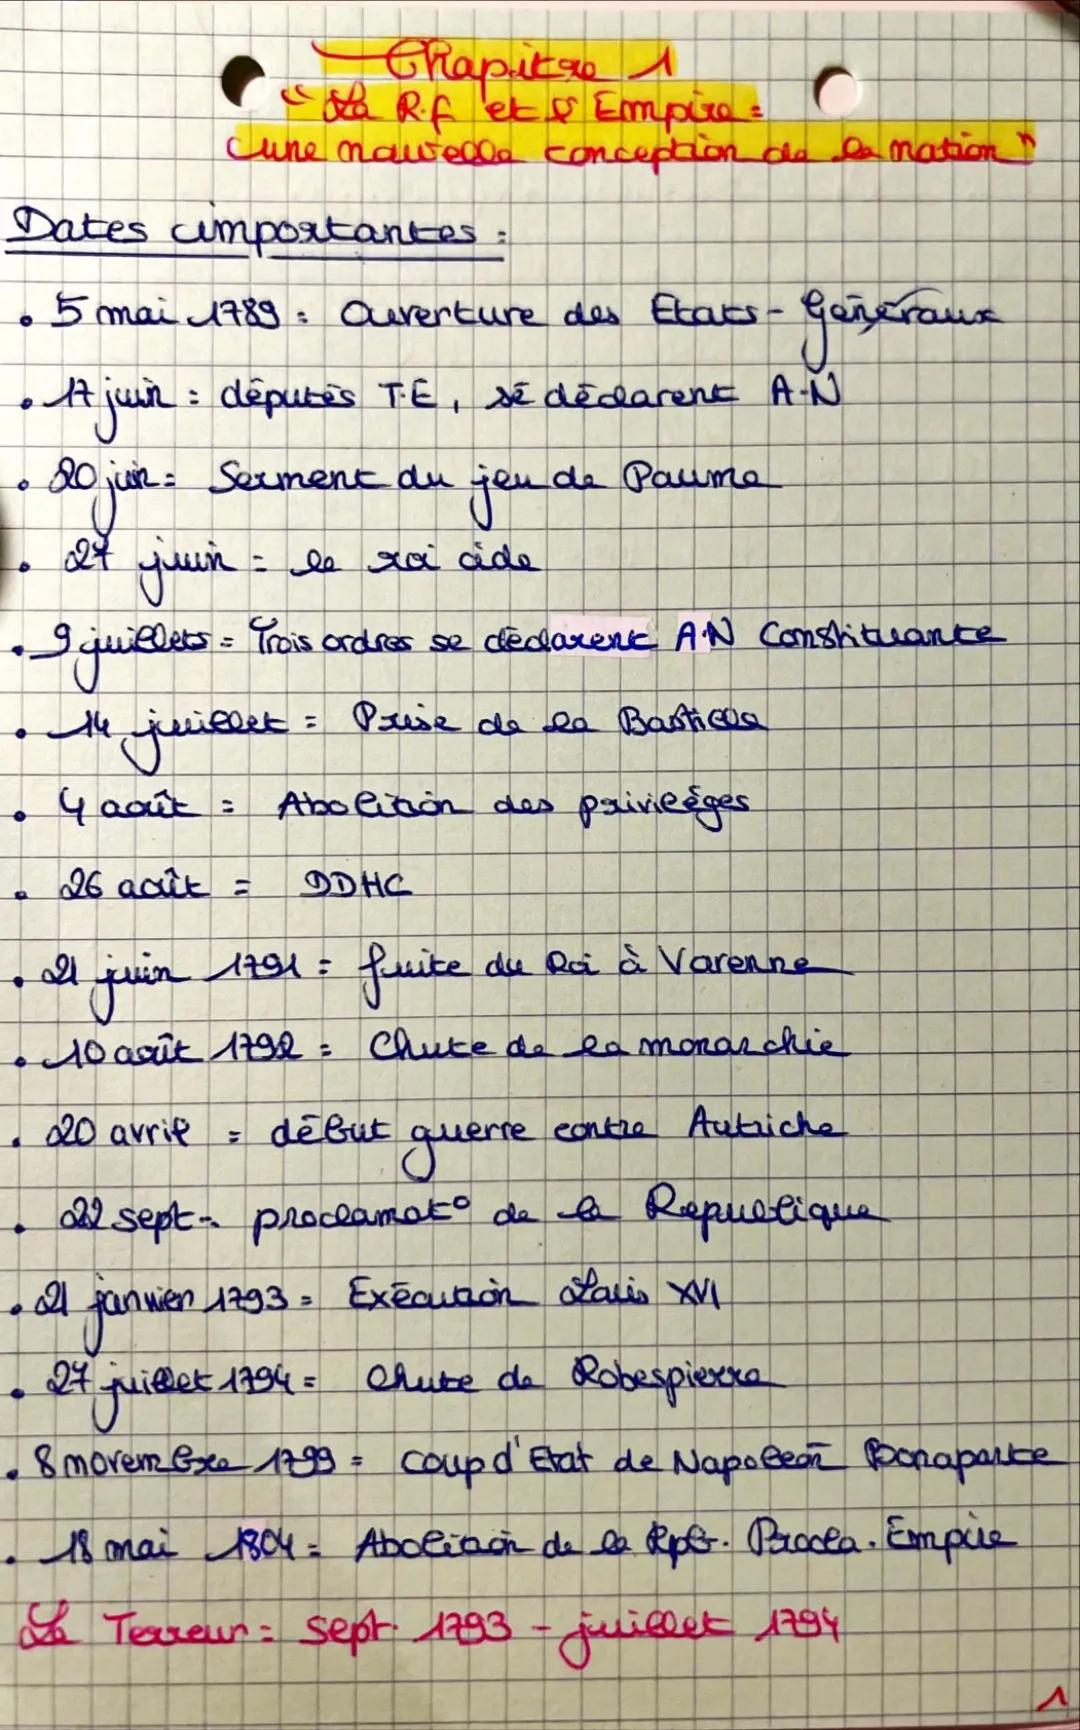 Chapitre 1
"La R.f et l'Empire =
une nouvelle conception de la nation"
Dates importantes :
• 5 mai 1789 = Ouverture des Etats-Généraux
• 17 juin : députés T.E, se déclarent A-N
• 20 juin = Serment du jeu de Paume
• 27 juin = le roi cède
• 9 juillets = Trois ordres se déclarent A.N Constituante
• 14 juillet = Prise de la Bastille
• 4 août = Abolition des privilèges
• 26 août = DDHC
• 21 juin 1791 = fuite du Roi à Varenne
• 10 août 1792 = Chute de la monarchie
• 20 avril = début guerre contre Autriche
• 22 sept - proclamat° de la Republique
• 21 janvier 1793 = Exécution Louis XVI
• 27 juillet 1794 = Chute de Robespierre
• 8 novembre 1799 = coup d'Etat de Napoléon Bonaparte
• 18 mai 1804 = Abolition de la Rpb. Procla. Empire
La Terreur = sept. 1793 - juillet 1794
1